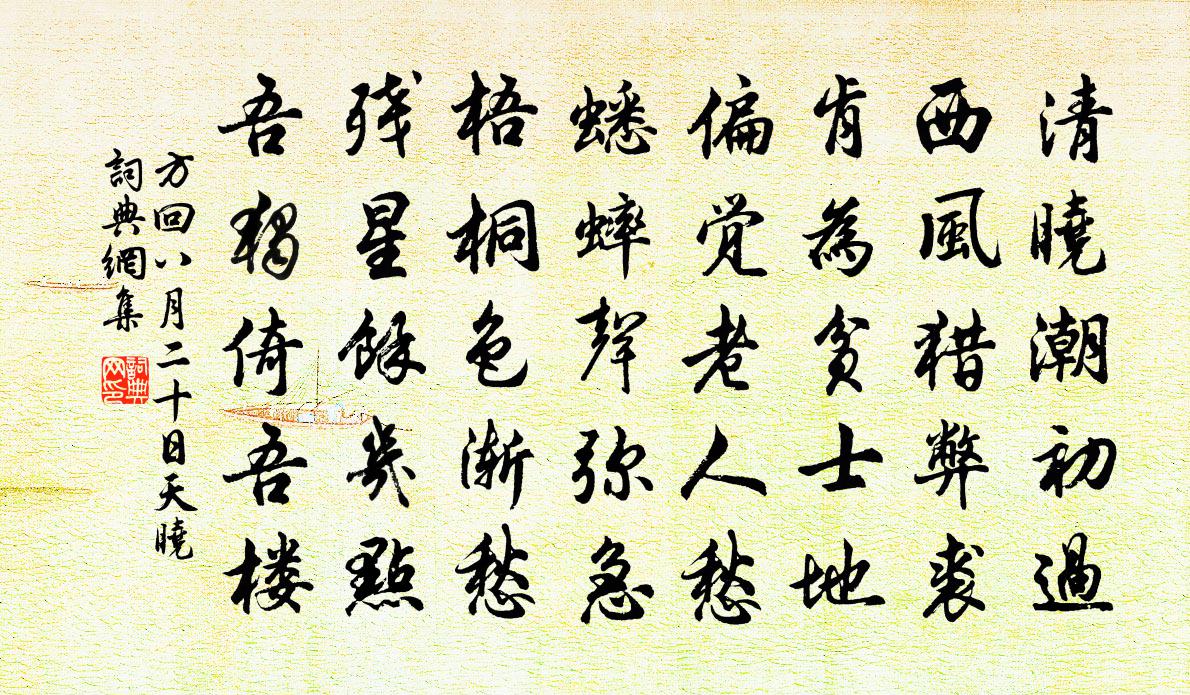 清曉潮初過
西風猎弊裘
肯為貧士地
偏觉老人愁
蟋蟀聲弥急
梧桐色渐愁
残星餘幾點
吾獨倚吾楼
方回八月二十日天曉
詞典網集
詞典
网印